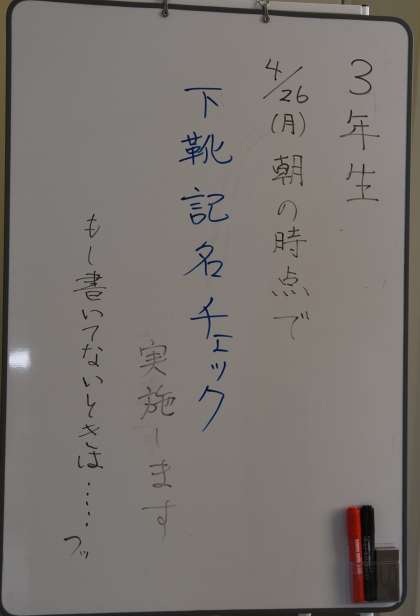 3年生
4/26(月)朝の時点で
下靴記名チェック
実施します
もし書いてないときは……
フッ